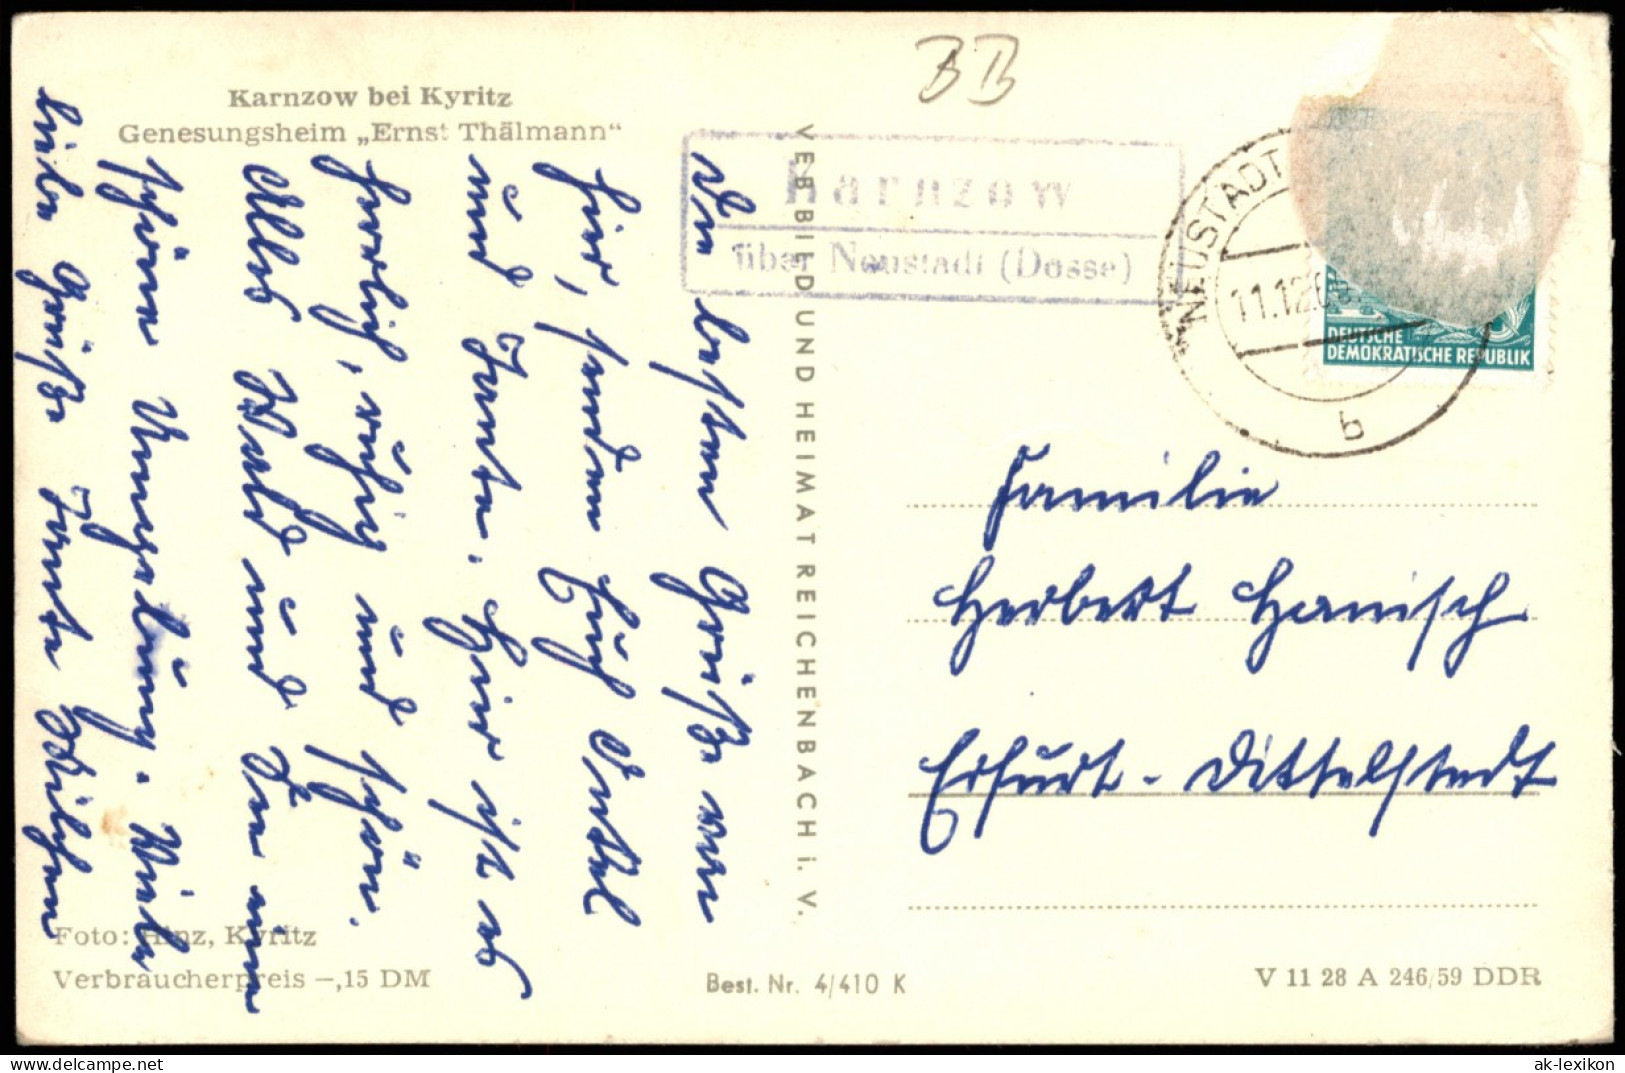 BB
Karnzow bei Kyritz
Genesungsheim „Ernst Thälmann“
Karnzow
über Neustadt (Dosse)
NEUSTADT
11.12.6
b
DEUTSCHE
DEMOKRATISCHE REPUBLIK
Die besten Grüße von
hier, senden Euch Onkel
und Tante. Hier ist es
herrlich, ruhig und schön.
Alles Wald und See eine
schöne Umgebung. Viele
liebe Grüße Tante
VEB BILD UND HEIMAT REICHENBACH i. V.
Familie
Herbert Hanisch
Erfurt - Dittelstedt
Foto: Hinz, Kyritz
Verbraucherpreis –,15 DM
Best. Nr. 4/410 K
V 11 28 A 246/59 DDR
ak-lexikon